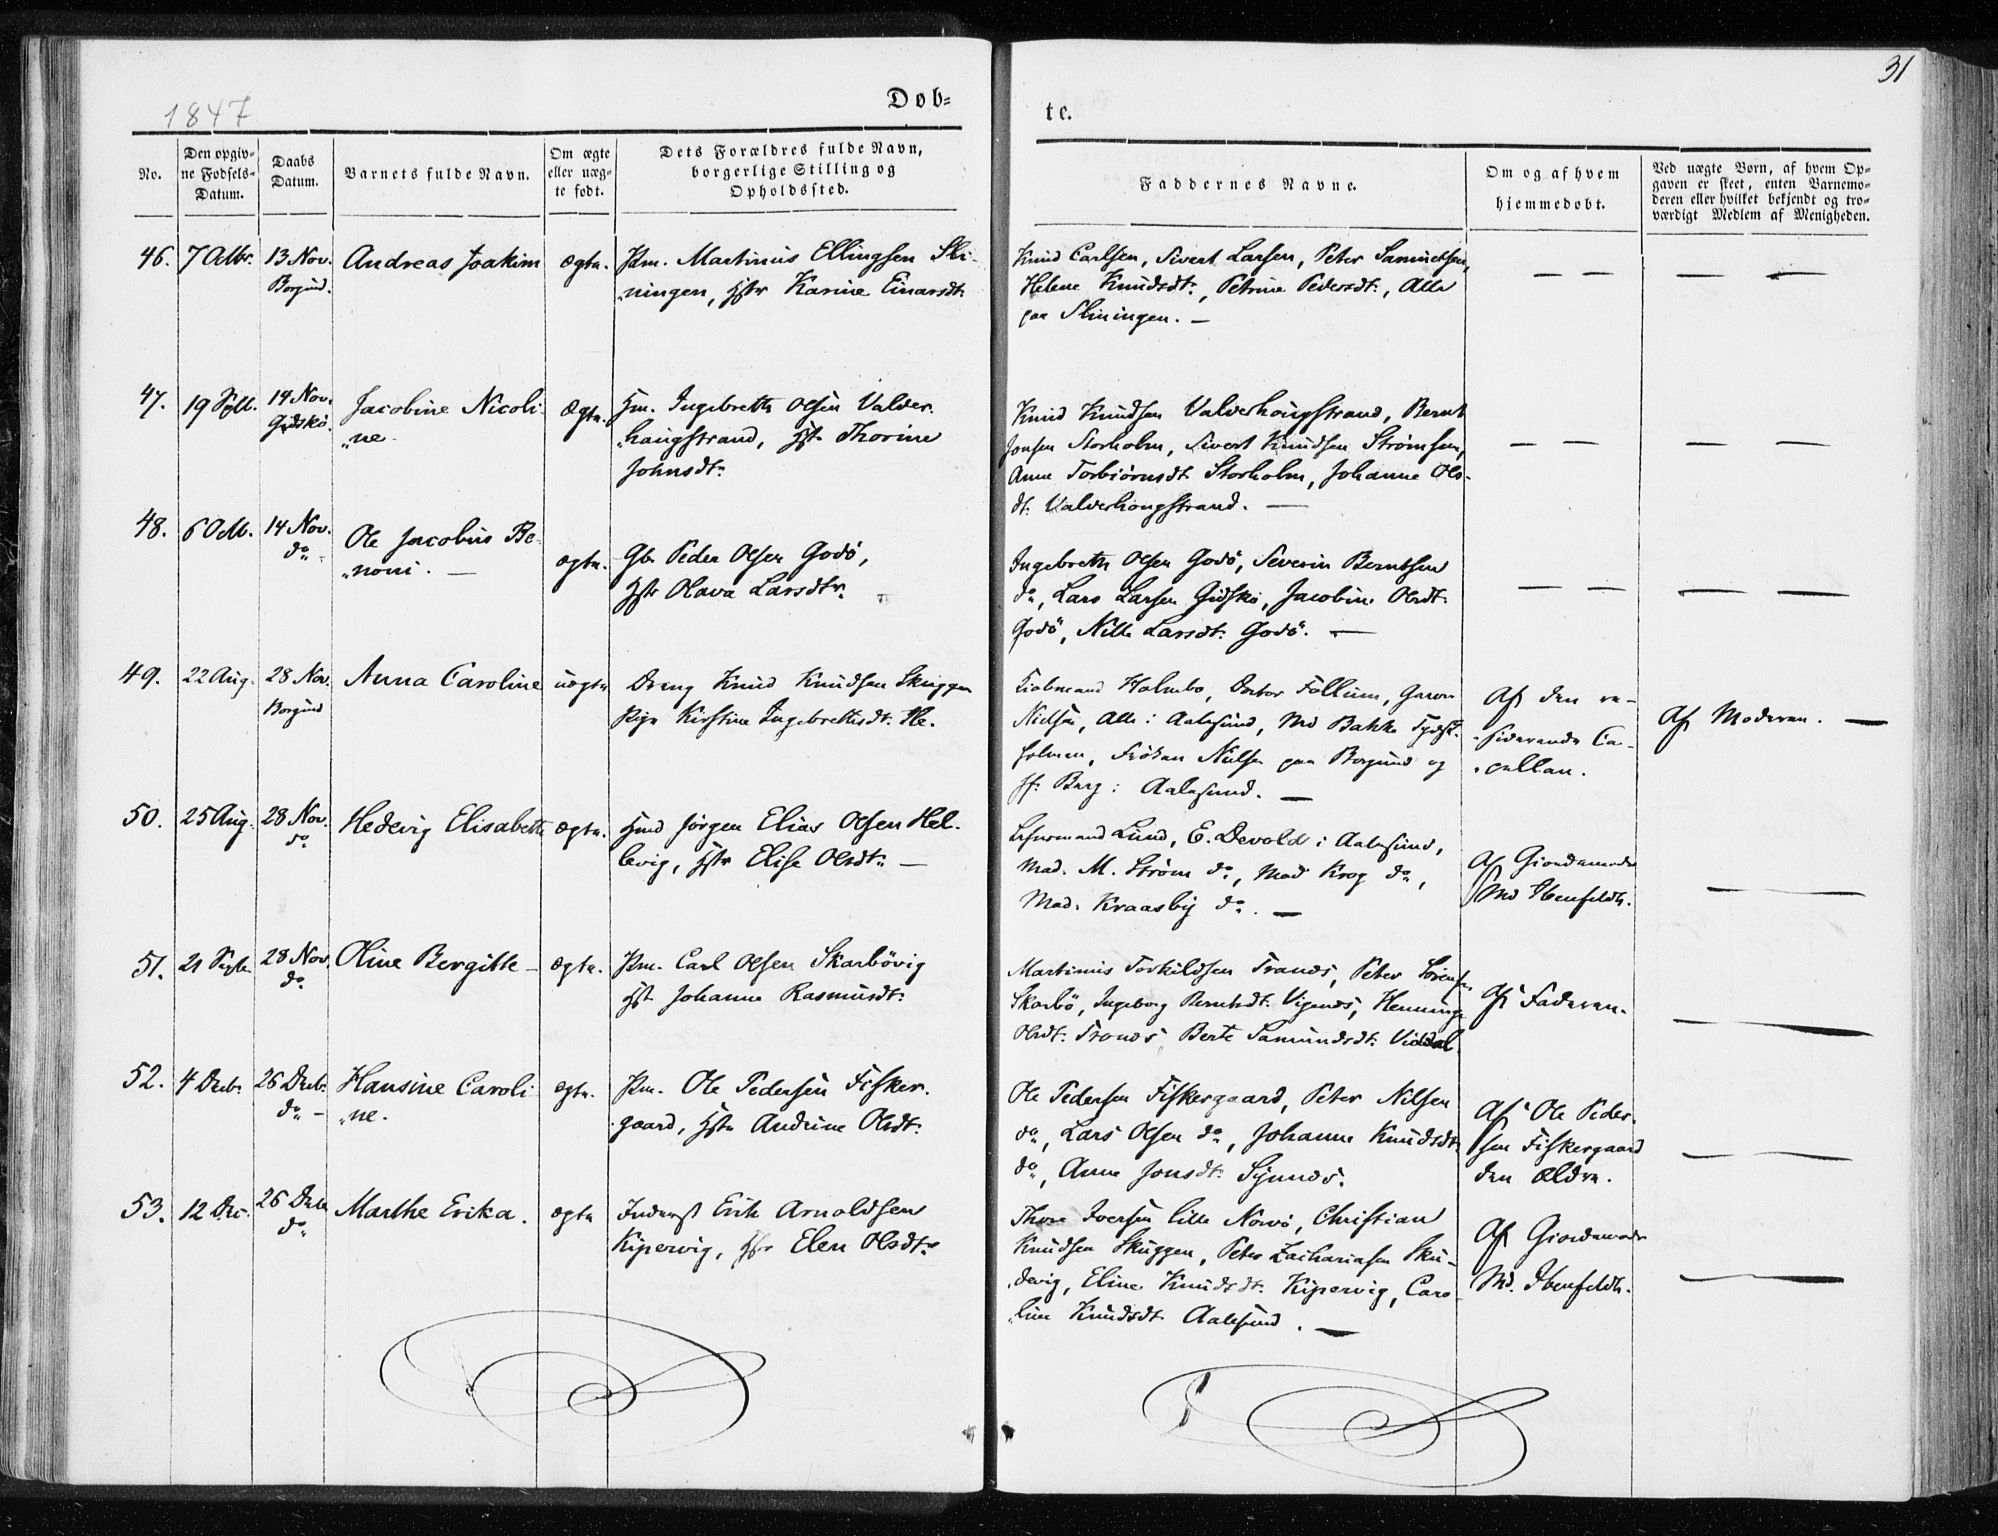 31
1847
Døb-
te.
No.
Den opgiv-
ne Fødsels-
Datum.
Daabs
Datum.
Barnets fulde Navn.
Om ægte
eller uæg-
te født.
Dets Forældres fulde Navn,
borgerlige Stilling og
Opholdssted.
Faddernes Navne.
Om og af hvem
hjemmedøbt.
Ved uægte Børn, af hvem Op-
gaven er skeet, enten Barnemo-
deren eller hvilket bekjendt og tro-
værdigt Medlem af Menigheden.
46.
7 Octbr.
13 Nov.
Borgund.
Andreas Joakim
ægte.
Martinus Ellingsen Sli-
ningen, Hstr Karine Einarsdtr
Knud Carlsen, Sivert Larsen, Peter Samuelsen,
Helene Knudsdtr, Petrine Pedersdtr, Alle
paa Sliningen. —
— —
— —
47.
19 Sept.
14 Nov.
Gidskø.
Jacobine Nicoli-
"ne.
ægte.
Hm. Ingebreth Olsen Valder-
haugstrand, Hstr Thorine
Johnsdtr
Knud Knudsen Valderhaugstrand, Bernt
Jonsen Storholm, Sivert Knudsen Strømsem,
Anne Torbiørnsdtr Storholm, Johanne Ols-
dtr Valderhaugstrand. —
— —
— —
48.
6 Octb.
14 Nov.
do
Ole Jacobus Be-
"noni. —
ægte.
Gbr Peder Olsen Godø,
Hstr Olava Larsdtr.
Ingebreth Olsen Godø, Severin Berntsen
do, Lars Larsen Gidskø, Jacobine Olsdtr
Godø, Nille Larsdtr Godø. —
— —
— —
49.
22 Aug.
28 Nov.
Borgund
Anna Caroline
uægte
Dreng Knud Knudsen Skuggen
Pige Kirstine Ingebrethsdtr
Kiøbmand Holmbo, Doctor Follum,
Nielsen, Alle i Aalesund, Md Bakke
holmen, Frøken Nielsen paa Borgund og
Berg i Aalesund. —
Af den re-
siderende Ca-
pellan.
Af Moderen. —
50.
25 Aug.
28 Nov.
do
Hedevig Elisabeth
ægte.
Hmd Jørgen Elias Olsen Hel-
levig, Hstr Elise Olsdtr —
Lund, E. Devold i Aalesund,
Mad. M. Strøm do, Mad Krog do,
Mad. Kraasby do. —
Af Giordemoder
Md Ibenfeldt.
—
51.
21 Septb.
28 Nov.
do
Oline Bergitte —
ægte.
Carl Olsen Skarbøvig
Hstr Johanne Rasmusdtr
Martinus Torkildsen Tranos, Peter Sørens.
Skarbø, Ingeborg Berntsdtr Vigenæs, Henninge
Olsdtr Tronos Berte Samundsdtr Viddal.
Af Faderen.
—
52.
4 Decbr.
26 Decbr.
do —
Hansine Caroli-
"ne.
ægte.
Ole Pedersen Fisker-
gaard, Hstr Andrine Olsdtr
Ole Pedersen Fiskergaard, Peter Nilsen
do, Lars Olsen do, Johanne Knudsdtr
do, Anne Jonsdtr
Af Ole Peder-
sen Fiskergaard
den ældre.
—
53.
12 Dec.
26 Decbr
do
Marthe Erika.
ægte
Inderst Erik Arnoldsen
Kipervig, Hstr Elen Olsdtr
Thore Iversen lille Nørvø, Christian
Knudsen Skuggen, Peter Zachariasen Sku-
devig, Eline Knudsdtr Kipervig, Caro-
line Knudsdtr Aalesund. —
Af Giordemoder
Md. Ibenfeldt.
—